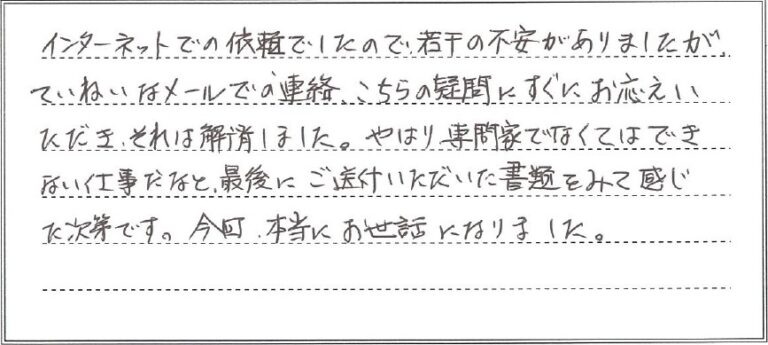 インターネットでの依頼でしたので、若干の不安がありましたが、
ていねいなメールでの連絡、こちらの疑問にすぐにお応えい
ただき、それは解消しました。やはり専門家でなくてはでき
ない仕事だなと、最後にご送付いただいた書類をみて感じ
た次第です。今回、本当にお世話になりました。